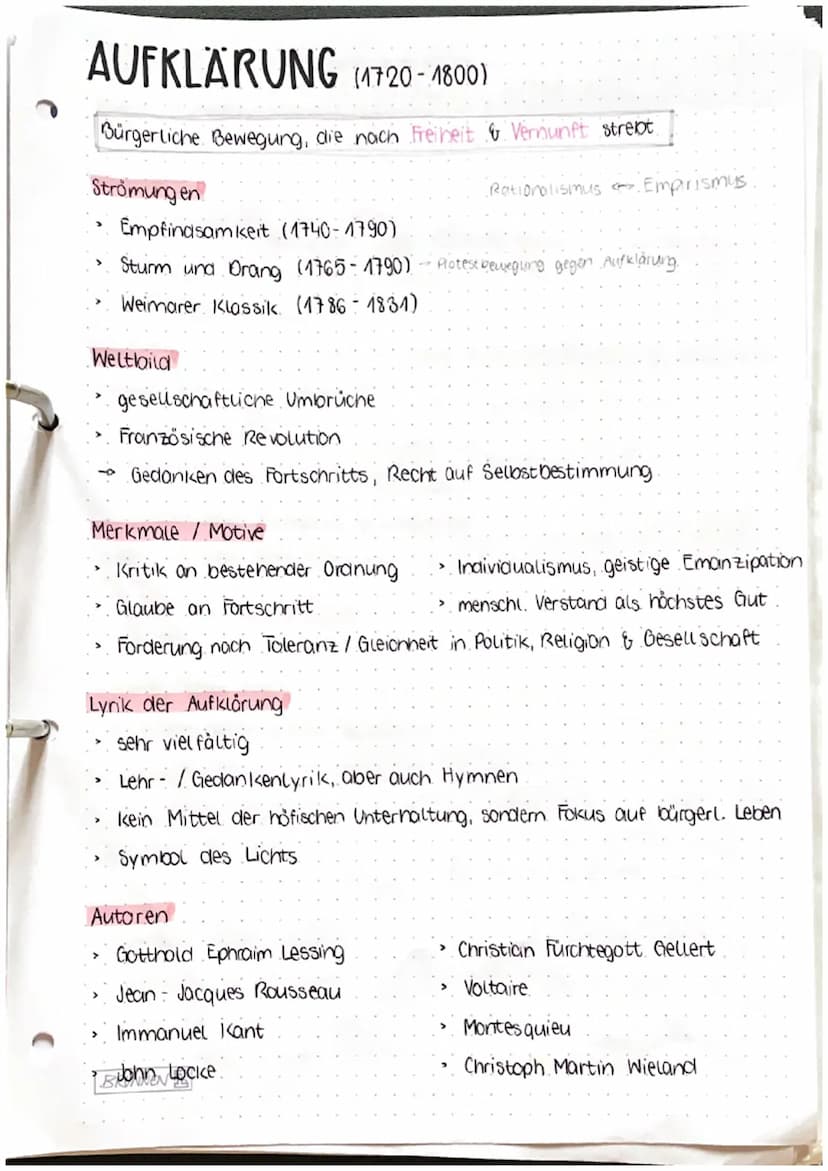 AUFKLÄRUNG (1720-1800)
Bürgerliche Bewegung, die nach Freiheit & Vernunft strebt
Strömungen
Rationalismus ↔ Empirismus
> Empfindsamkeit (1740-1790)
> Sturm und Drang (1765-1790) → Protestbewegung gegen Aufklärung
> Weimarer Klassik (1786-1831)
Weltbild
> gesellschaftliche Umbrüche
> Französische Revolution
→ Gedanken des Fortschritts, Recht auf Selbstbestimmung
Merkmale / Motive
> Kritik an bestehender Ordnung > Individualismus, geistige Emanzipation
> Glaube an Fortschritt > menschl. Verstand als höchstes Gut
> Forderung nach Toleranz / Gleichheit in Politik, Religion & Gesellschaft
Lyrik der Aufklärung
> sehr vielfältig
> Lehr- / Gedankenlyrik, aber auch Hymnen
> kein Mittel der höfischen Unterhaltung, sondern Fokus auf bürgerl. Leben
> Symbol des Lichts
Autoren
> Gotthold Ephraim Lessing > Christian Fürchtegott Gellert
> Jean-Jacques Rousseau > Voltaire
> Immanuel Kant > Montesquieu
> John Locke > Christoph Martin Wieland
BRUNNEN